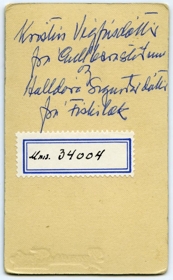 Kristín Vigfúsdóttir
frá Gullberastöðum
og
Halldóra Sigurðardóttir
frá Fiskilæk
Mms. 34004